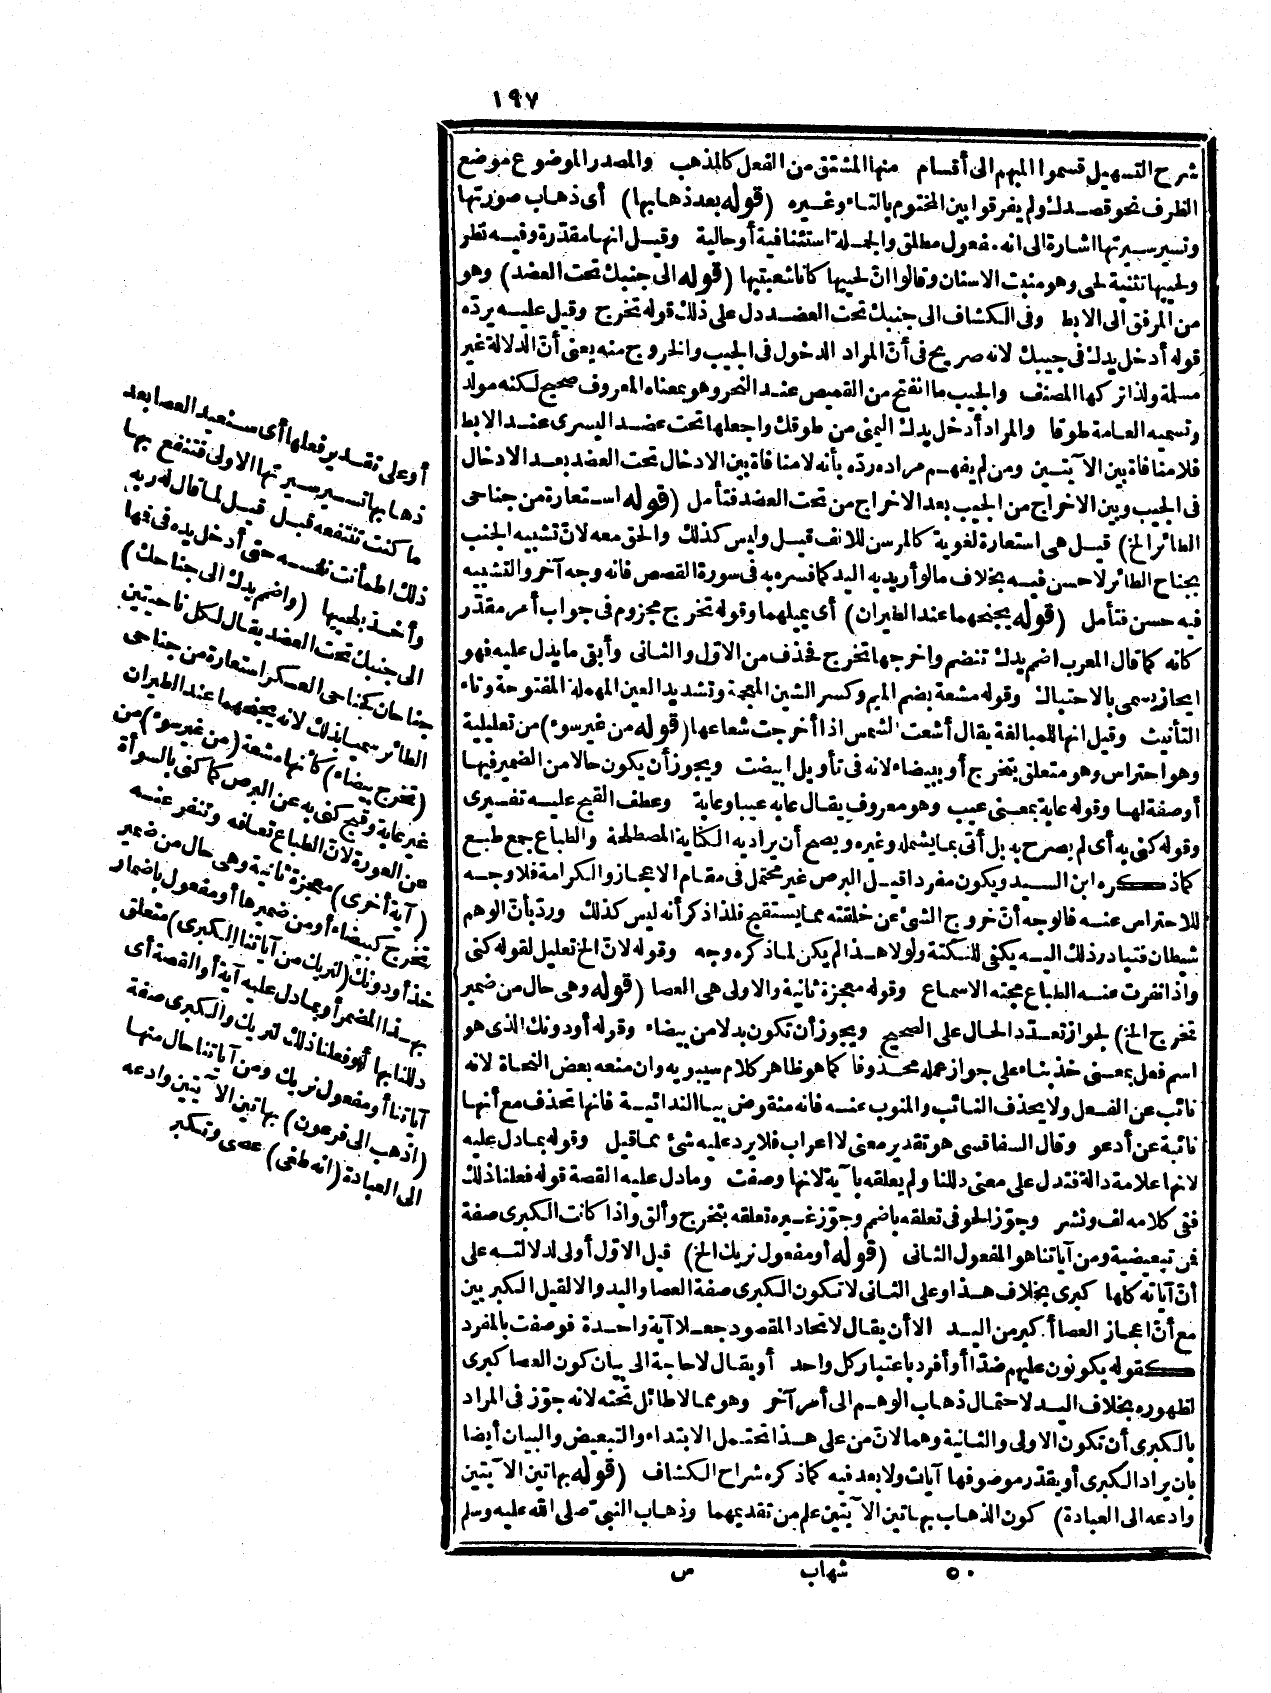 ١٩٧
شرح التسهيل قسموا المبهم الى أقسام منها المشتق من الفعل كالمذهب والمصدر الموضوع موضع
الظرف نحو قصدك ولم يفرقوا بين المختوم بالتاء وغيره (قوله بعد ذهابها) أى ذهاب صورتها
وتسير سيرتها اشارة الى انه مفعول مطلق والجملة استئنافية أو حالية وقيل انها مقدرة وفيه نظر
ولحييها تثنية لحى وهو منبت الاسنان وقالوا انّ لحييها كانا شعبتيها (قوله الى جنبك تحت العضد) وهو
من المرفق الى الابط وفى الكشاف الى جنبك تحت العضد دل على ذلك قوله تخرج وقيل عليه يردّه
قوله أدخل يدك فى جيبك لانه صريح فى أنّ المراد الدخول فى الجيب والخروج منه يعنى أنّ الدلالة غير
مسلمة ولذا تركها المصنف والجيب ما انفتح من القميص عند النحر وهو بمعناه المعروف صحيح لكنه مولد
وتسميه العامة طوقا والمراد أدخل يدك اليمنى من طوقك واجعلها تحت عضد اليسرى عند الابط
فلا منافاة بين الآيتين ومن لم يفهم مراده ردّه بأنه لا منافاة بين الادخال تحت العضد بعد الادخال
فى الجيب وبين الاخراج من الجيب بعد الاخراج من تحت العضد فتأمل (قوله استعارة من جناحى
الطائر الخ) قيل هى استعارة لغوية كالمرسن للانف قيل وليس كذلك والحق معه لانّ تشبيه الجنب
بجناح الطائر لا حسن فيه بخلاف ما لو أريد به اليد كما فسره به فى سورة القصص فانه وجه آخر والتشبيه
فيه حسن فتأمل (قوله يجنحهما عند الطيران) أى يميلهما وقوله تخرج مجزوم فى جواب أمر مقدّر
كانه كما قال المعرب اضمم يدك تنضم واخرجها تخرج فحذف من الاوّل والثانى وأبقى ما يدل عليه فهو
ايجاز يسمى بالاحتباك وقوله مشعة بضم الميم وكسر الشين المعجمة وتشديد العين المهملة المفتوحة وتاء
التأنيث وقيل انها للمبالغة يقال أشعت الشمس اذا أخرجت شعاعها (قوله من غير سوء) من تعليلية
وهو احتراس وهو متعلق بتخرج أو ببيضاء لانه فى تأويل ابيضت ويجوز أن يكون حالا من الضمير فيها
أو صفة لها وقوله عاية بمعنى عيب وهو معروف يقال عابه عيبا وعاية وعطف القبح عليه تفسيرى
وقوله كنى به أى لم يصرح به بل أتى بما يشمله وغيره ويصح أن يراد به الكناية المصطلحة والطباع جمع طبع
كما ذكره ابن السيد ويكون مفردا قيل البرص غير محتمل فى مقام الاعجاز والكرامة فلا وجه
للاحتراس عنه فالوجه أنّ خروج الشئ عن خلقته مما يستقبح فلذا ذكر أنه ليس كذلك وردّ بأنّ الوهم
شيطان فتبادر ذلك اليه يكفى للنكتة ولولا هذا لم يكن لما ذكره وجه وقوله لانّ الخ تعليل لقوله كنى
واذا نفرت عنه الطباع مجته الاسماع وقوله معجزة ثانية والاولى هى العصا (قوله وهى حال من ضمير
تخرج الخ) لجواز تعدّد الحال على الصحيح ويجوز أن تكون بدلا من بيضاء وقوله أو دونك الذى هو
اسم فعل بمعنى خذ بناء على جواز عمله محذوفا كما هو ظاهر كلام سيبويه وان منعه بعض النحاة لانه
نائب عن الفعل ولا يحذف النائب والمنوب عنه فانه منقوض بيا الندائية فانها تحذف مع أنها
نائبة عن أدعو وقال السفاقسى هو تقدير معنى لا اعراب فلا يرد عليه شئ مما قيل وقوله بما دل عليه
لانها علامة دالة فتدل على معنى دللنا ولم يعلقه بآية لانها وصفت وما دل عليه القصة قوله فعلنا ذلك
ففى كلامه لف ونشر وجوّز الحوفى تعلقه باضمم وجوّز غيره تعلقه بتخرج وألق واذا كانت الكبرى صفة
فمن تبعيضية ومن آياتنا هو المفعول الثانى (قوله أو مفعول نريك الخ) قيل الاوّل أولى لدلالته على
أنّ آياته كلها كبرى بخلاف هذا وعلى الثانى لا تكون الكبرى صفة العصا واليد والا لقيل الكبريين
مع أنّ اعجاز العصا أكبر من اليد الا أن يقال لاتحاد المقصود جعلا آية واحدة فوصفت بالمفرد
كقوله يكونون عليهم ضدّا أو أفرد باعتبار كل واحد أو يقال لا حاجة الى بيان كون العصا كبرى
لظهوره بخلاف اليد لاحتمال ذهاب الوهم الى أمر آخر وهو مما لا طائل تحته لانه جوّز فى المراد
بالكبرى أن تكون الاولى والثانية وهما لانّ من على هذا تحتمل الابتداء والتبعيض والبيان أيضا
بان يراد الكبرى أو يقدّر موصوفها آيات ولا بعد فيه كما ذكره شراح الكشاف (قوله بهاتين الآيتين
وادعه الى العبادة) كون الذهاب بهاتين الآيتين علم من تقديمهما وذهاب النبىّ صلى الله عليه وسلم
أو على تقدير فعلها أى سنعيد العصا بعد
ذهابها تسير سيرتها الاولى فتنتفع بها
ما كنت تنتفعه قبل قيل لما قال له ربه
ذلك اطمأنت نفسه حتى أدخل يده فى فها
وأخذ بلحييها (واضمم يدك الى جناحك)
الى جنبك تحت العضد يقال لكل ناحيتين
جناحان كجناحى العسكر استعارة من جناحى
الطائر سميا بذلك لانه يجنحهما عند الطيران
(تخرج بيضاء) كأنها مشعة (من غير سوء) من
غير عاية وقبح كنى به عن البرص كما كنى بالسوأة
عن العورة لانّ الطباع تعافه وتنفر عنه
(آية أخرى) معجزة ثانية وهى حال من ضمير
تخرج كبيضاء أو من ضميرها أو مفعول باضمار
خذ أو دونك (لنريك من آياتنا الكبرى) متعلق
بهذا المضمر أو بما دل عليه آية أو القصة أى
دللنا بها أو فعلنا ذلك لنريك والكبرى صفة
آياتنا أو مفعول نريك ومن آياتنا حال منها
(اذهب الى فرعون) بهاتين الآيتين وادعه
الى العبادة (انه طغى) عصى وتكبر
٥٠ شهاب س